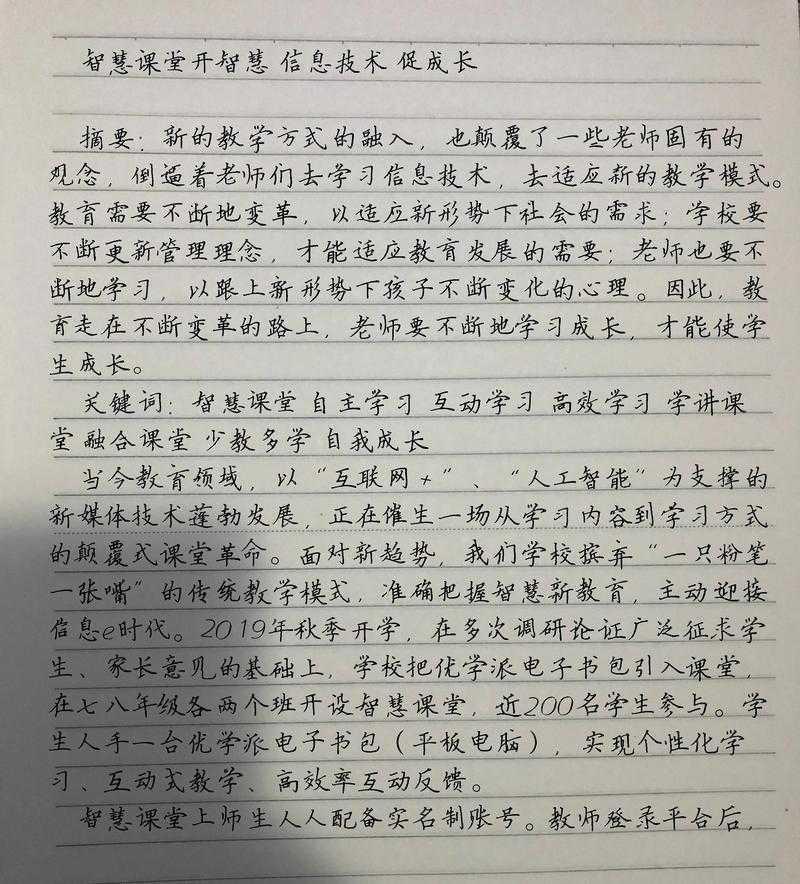 智慧课堂开智慧 信息技术 促成长
摘要：新的教学方式的融入，也颠覆了一些老师固有的
观念，倒逼着老师们去学习信息技术，去适应新的教学模式。
教育需要不断地变革，以适应新形势下社会的需求；学校要
不断更新管理理念，才能适应教育发展的需要；老师也要不
断地学习，以跟上新形势下孩子不断变化的心理。因此，教
育走在不断变革的路上，老师要不断地学习成长，才能使学
生成长。
关键词：智慧课堂 自主学习 互动学习 高效学习 学讲课
堂 融合课堂 少教多学 自我成长
当今教育领域，以“互联网+”、“人工智能”为支撑的
新媒体技术蓬勃发展，正在催生一场从学习内容到学习方式
的颠覆式课堂革命。面对新趋势，我们学校摈弃“一只粉笔
一张嘴”的传统教学模式，准确把握智慧新教育，主动迎接
信息e时代。2019年秋季开学，在多次调研论证广泛征求学
生、家长意见的基础上，学校把优学派电子书包引入课堂，
在七八年级各两个班开设智慧课堂，近200名学生参与。学
生人手一台优学派电子书包（平板电脑），实现个性化学
习、互动式教学、高效率互动反馈。
智慧课堂上师生人人配备实名制账号。教师登录平台后，